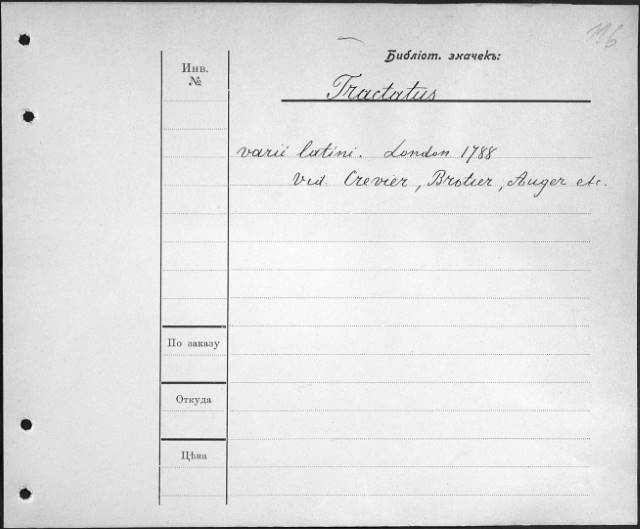 Библіот. значекъ:
Инв.
№
Tractatus
varii latini. London 1788
Vid. Crevier, Brotier, Auger etc.
По заказу
Откуда
Цѣна